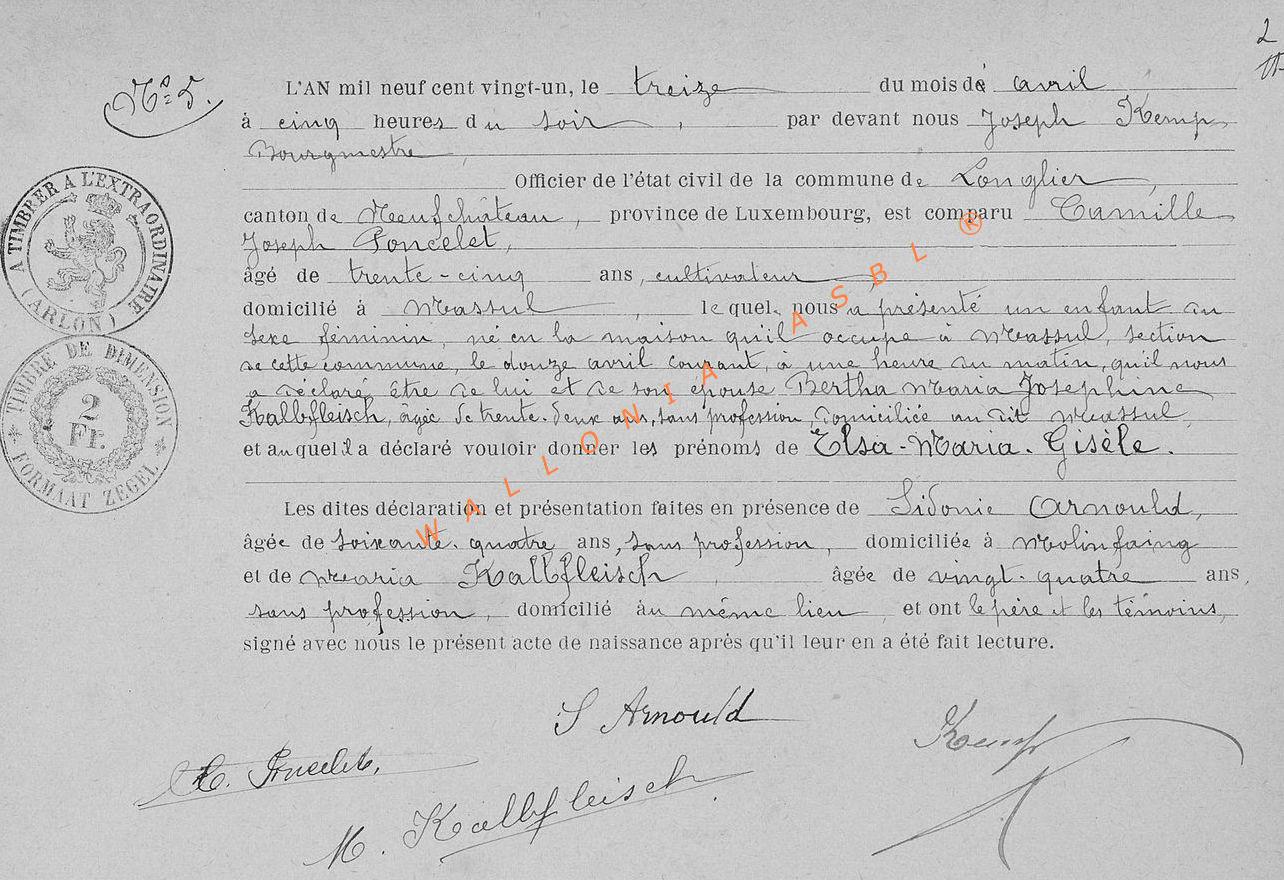 2
Nº 5.
L'AN mil neuf cent vingt-un, le treize du mois de avril
à cinq heures du soir, par devant nous Joseph Kemp,
Bourgmestre,
Officier de l'état civil de la commune de Longlier,
canton de Neufchâteau, province de Luxembourg, est comparu Camille
Joseph Poncelet,
âgé de trente-cinq ans, cultivateur,
domicilié à Massul, lequel nous a présenté un enfant du
sexe féminin, né en la maison qu'il occupe à Massul, section
de cette commune, le douze avril courant, à une heure du matin, qu'il nous
a déclaré être de lui et de son épouse Bertha Maria Josephine
Kalbfleisch, agée de trente-deux ans, sans profession, domiciliée au dit Massul,
et auquel il a déclaré vouloir donner les prénoms de Elsa-Maria-Gisèle.
Les dites déclaration et présentation faites en présence de Sidonie Arnould,
âgée de soixante-quatre ans, sans profession, domiciliée à Molinfaing
et de Maria Kalbfleisch, âgée de vingt-quatre ans,
sans profession, domicilié au même lieu, et ont le père et les témoins,
signé avec nous le présent acte de naissance après qu'il leur en a été fait lecture.
S Arnould
Kemp
C. Poncelet,
M. Kalbfleisch.
A TIMBRER A L'EXTRAORDINAIRE
(ARLON)
TIMBRE DE DIMENSION
2
Fr.
FORMAAT ZEGEL
WALLONIA ASBL ®